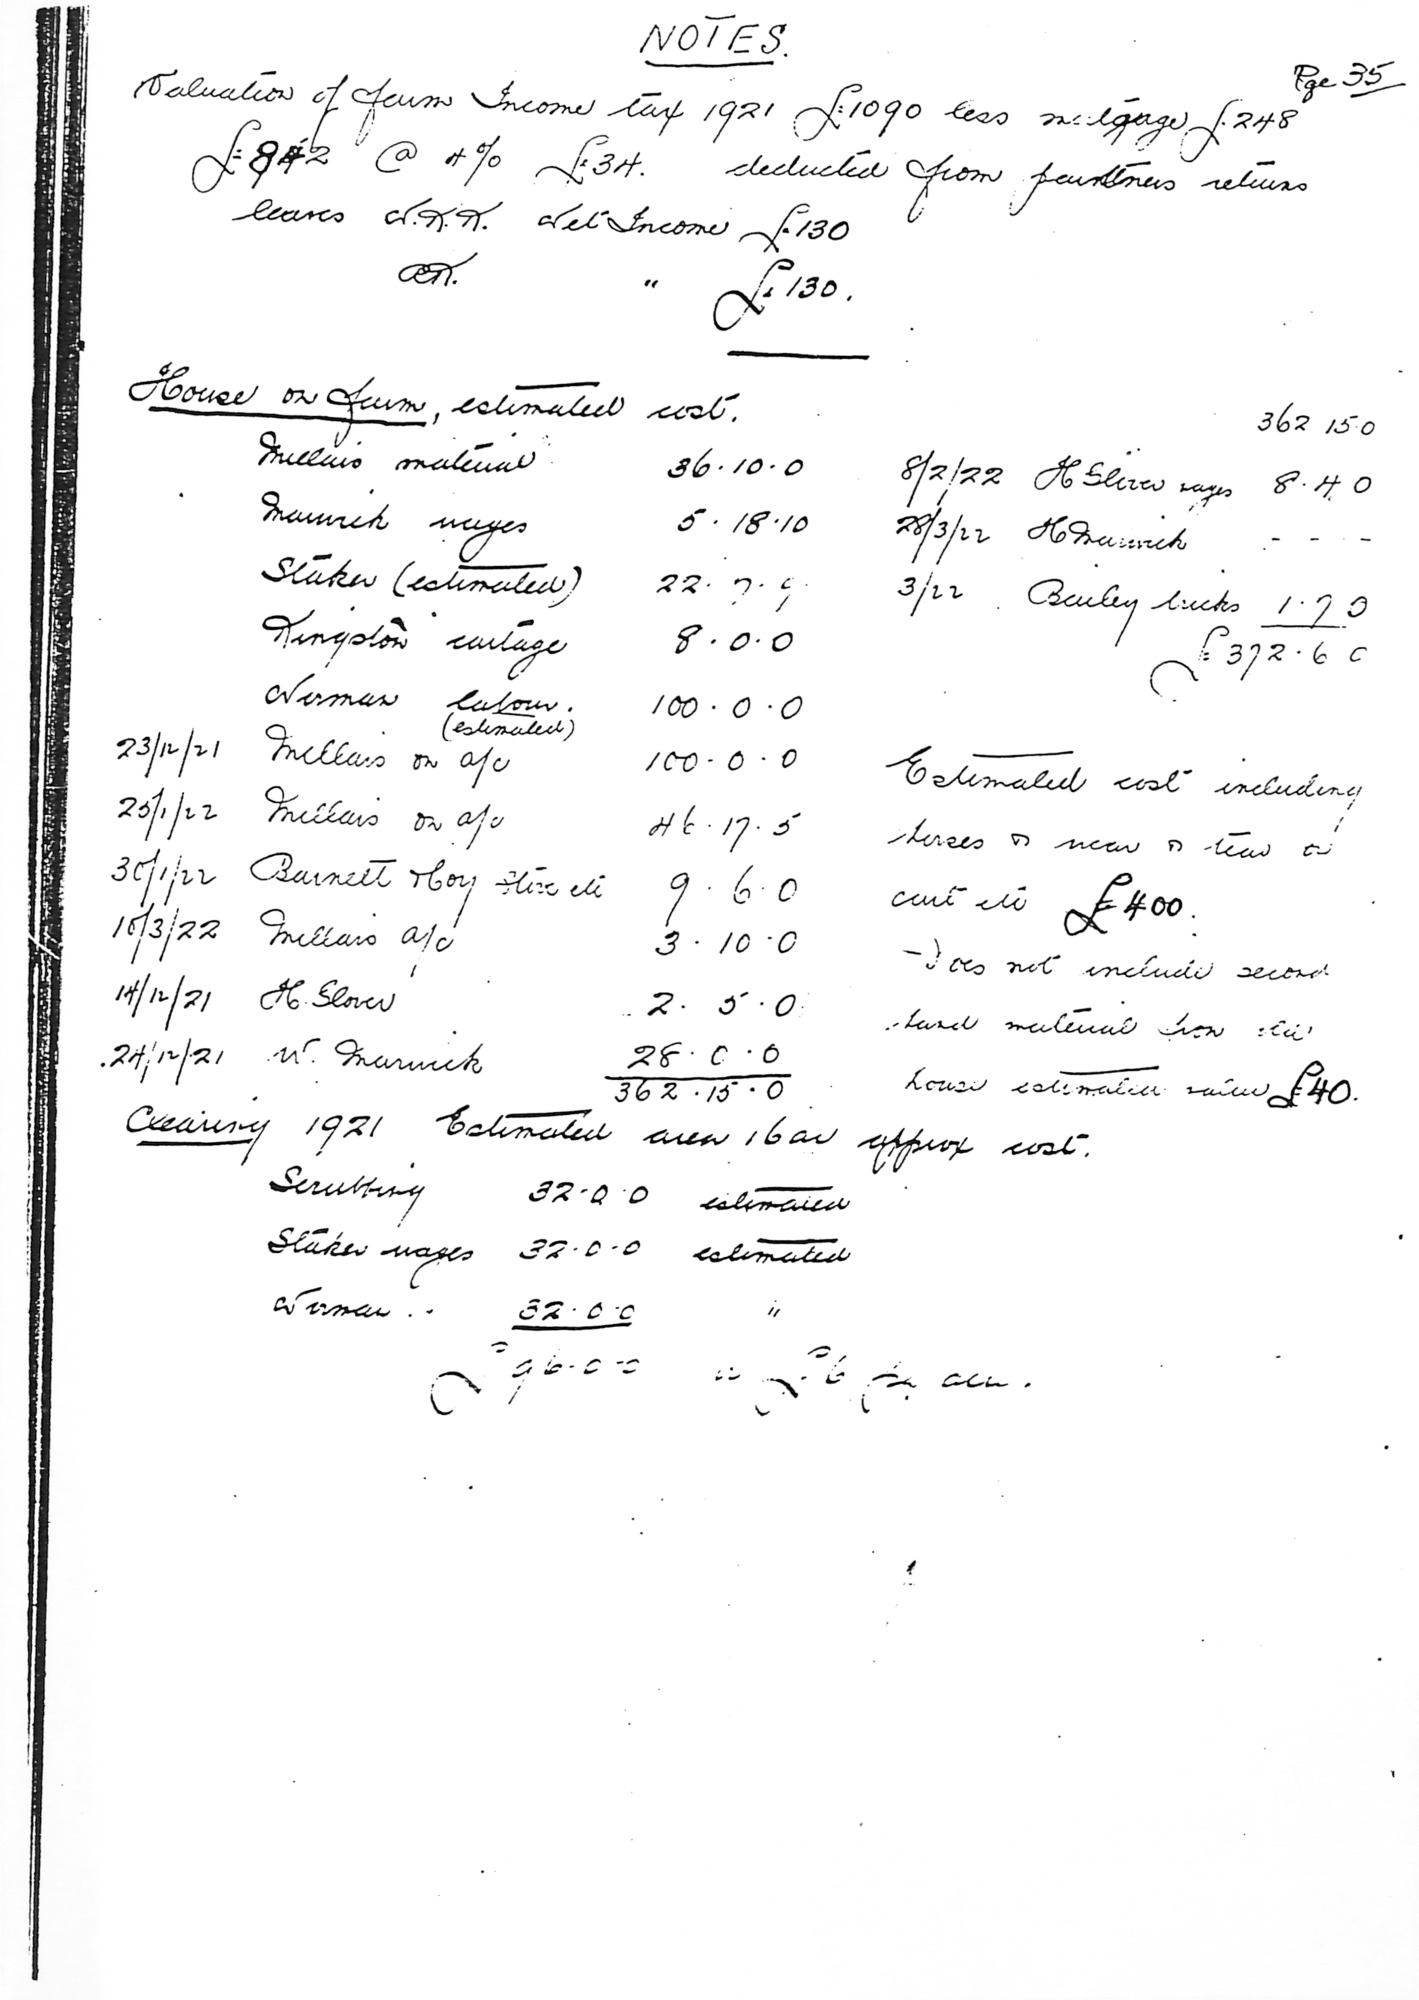 NOTES.
Pge 35
Valuation of farm Income tax 1921 £1090 less mortgage £248
£842 @ 4% £34. deducted from partners returns
leaves N.K.K. Net Income £130
" £130.
House on farm, estimated cost.
Millars material 36.10.0
Marwick wages 5.18.10
Staker (estimated) 22.7.9
Kingston cartage 8.0.0
Norman labour. 100.0.0
(estimated)
23/12/21 Millars on a/c 100.0.0
25/1/22 Millars on a/c 46.17.5
30/1/22 Barnett & Coy etc 9.6.0
10/3/22 Millars a/c 3.10.0
14/12/21 H. Glover 2.5.0
24/12/21 W. Marwick 28.0.0
362.15.0
362 15.0
8/2/22 H Glover wages 8.4.0
28/3/22 H Marwick - - -
3/22 Bailey bricks 1.7.0
£372.6.0
Estimated cost including
horses & wear & tear on
cart etc £400.
Does not include second
hand material from old
house estimated value £40.
Clearing 1921 Estimated area 16 ac approx cost.
Scrubbing 32.0.0 estimated
Staker wages 32.0.0 estimated
Norman " 32.0.0 "
£96.0.0 or £6 per acre.